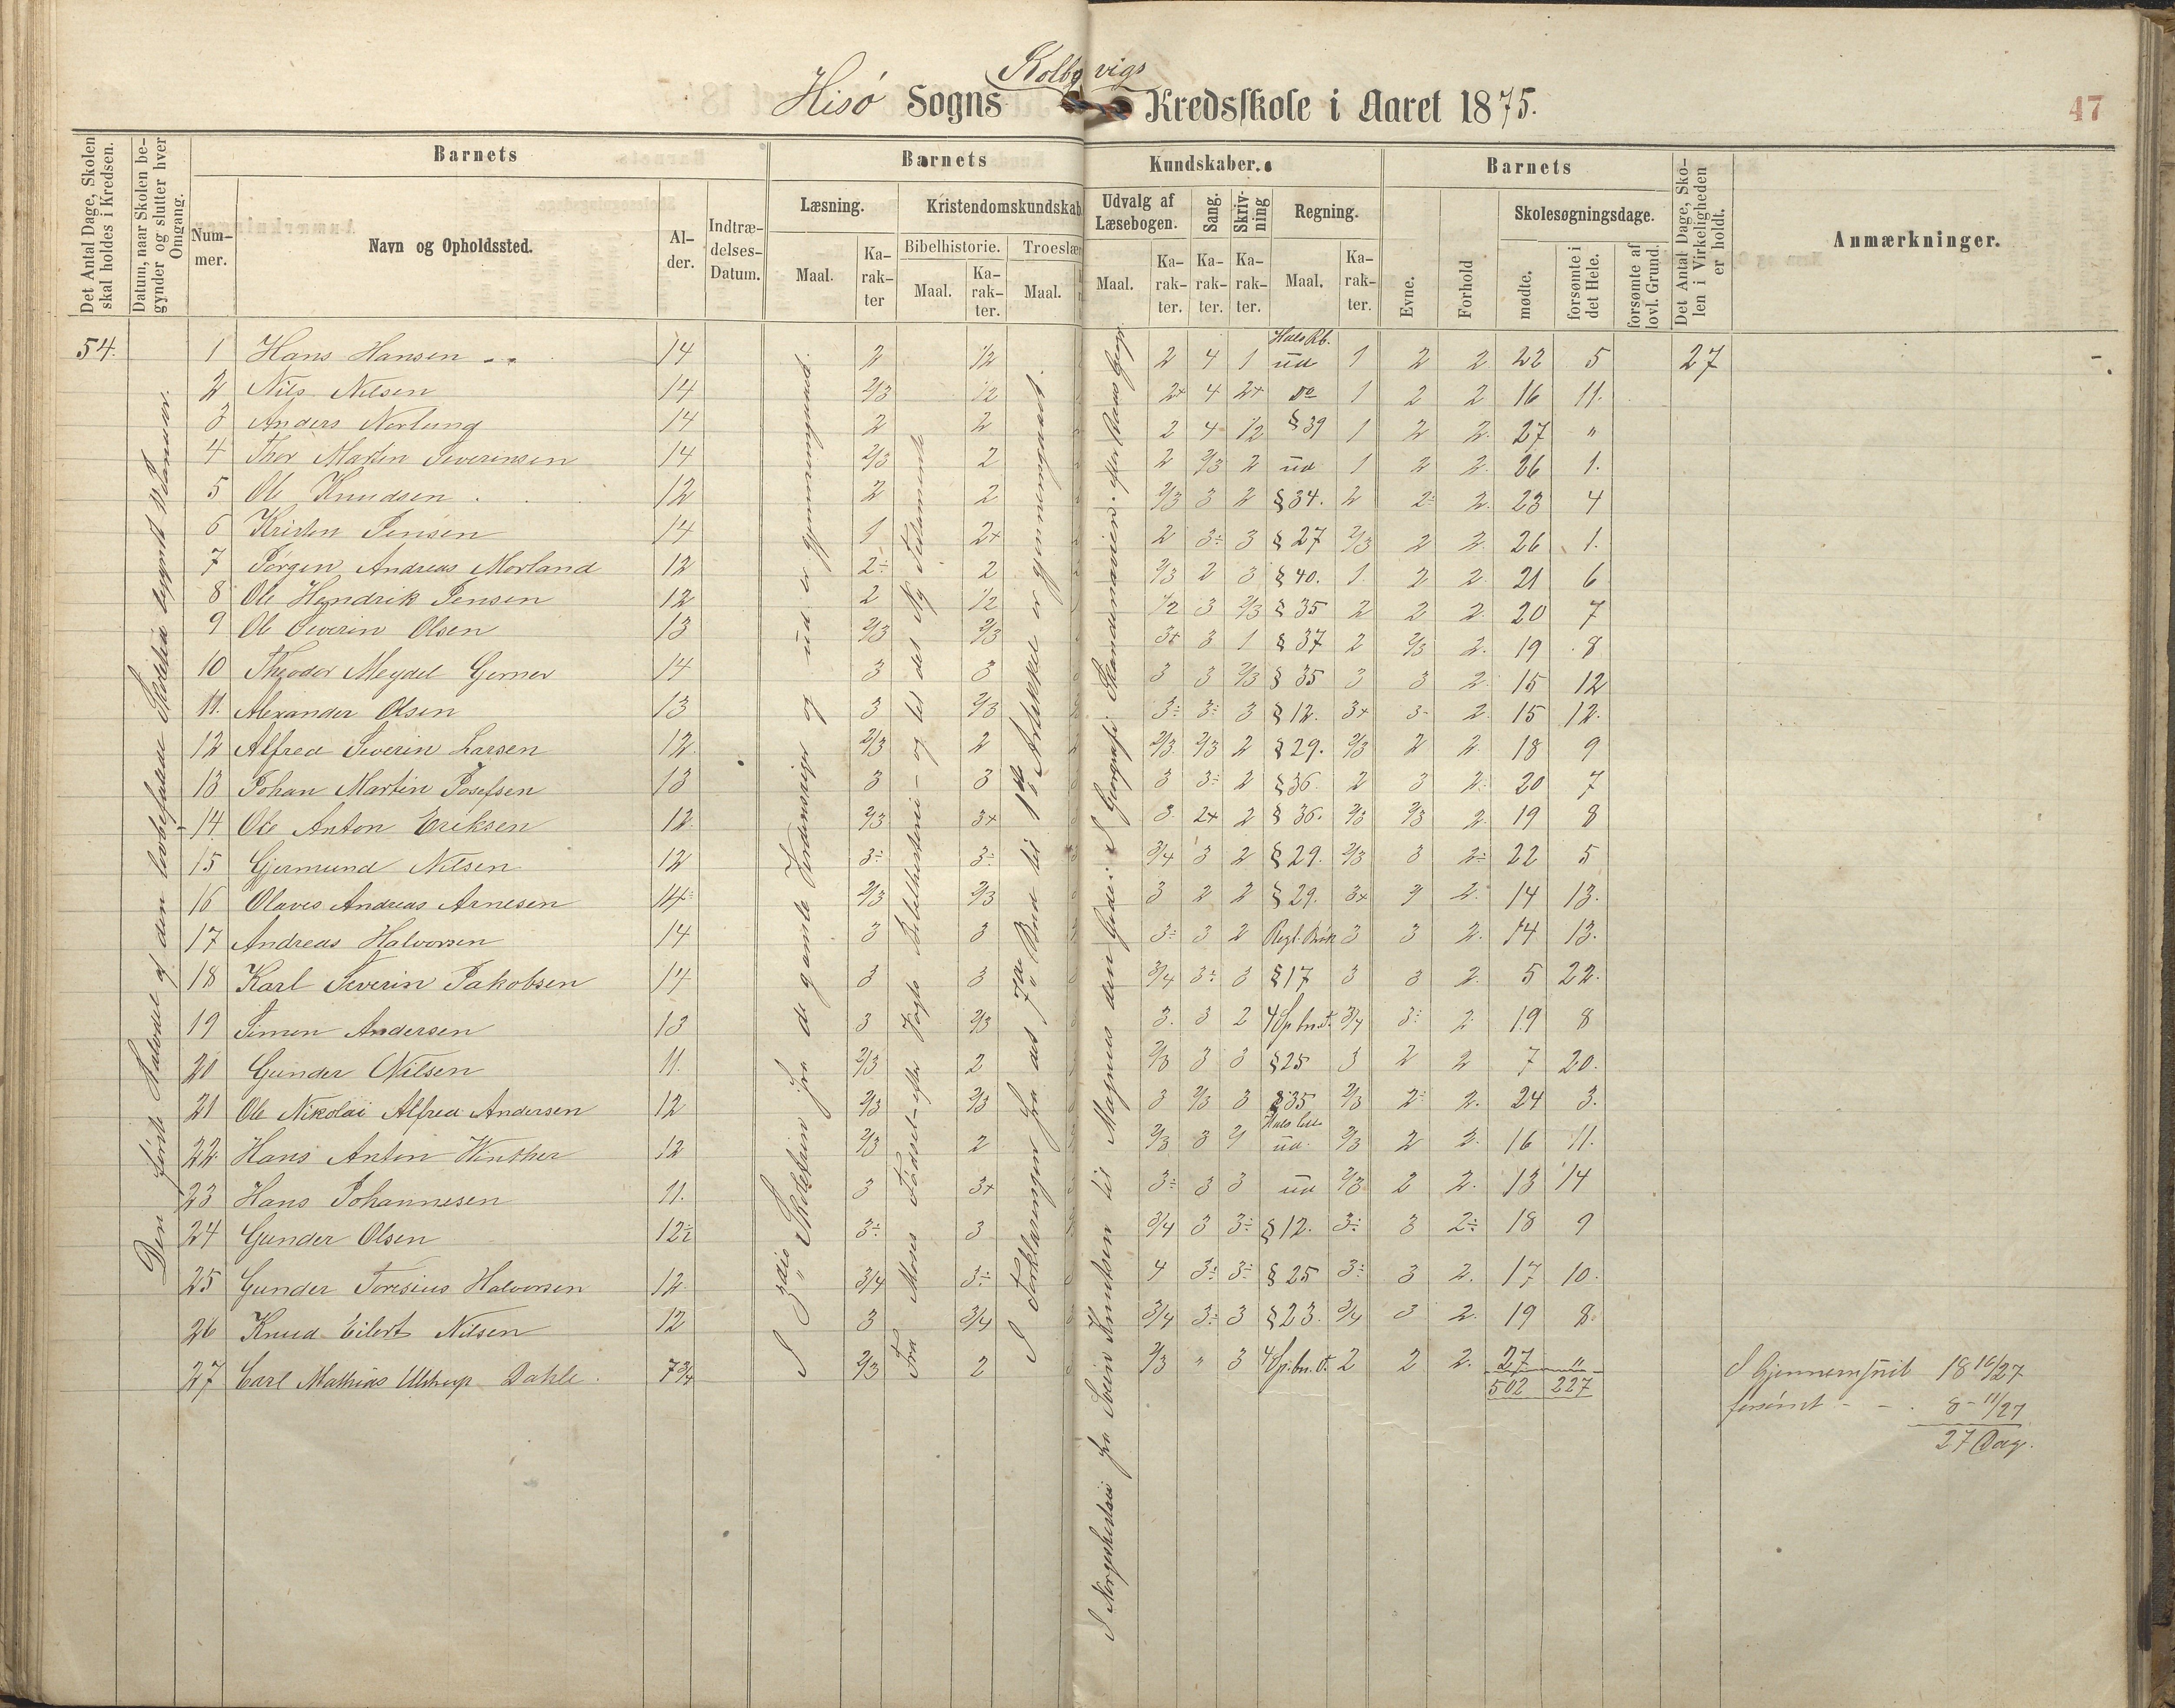 Kolbgvigs
Hisø Sogns Kredsskole i Aaret 1875.
47
Det Antal Dage, Skolen skal holdes i Kredsen.
Datum, naar Skolen begynder og slutter hver Omgang.
Barnets
Nummer.
Navn og Opholdssted.
Alder.
Indtrædelses-Datum.
Barnets Kundskaber.
Læsning.
Maal.
Karakter
Kristendomskundskab
Bibelhistorie.
Maal.
Karakter.
Troeslær
Maal.
Udvalg af Læsebogen.
Maal.
Karakter.
Sang.
Karakter.
Skrivning
Karakter.
Regning.
Maal.
Karakter.
Barnets
Evne.
Forhold
Skolesøgningsdage.
mødte.
forsømte i det Hele.
forsømte af lovl. Grund.
Det Antal Dage, Skolen i Virkeligheden er holdt.
Anmærkninger.
54. 1 Hans Hansen 14 2 1/2 2 4 1 Hals Rb. ud 1 2 2 22 5 27
2 Nils Nilsen 14 2/3 1/2 2+ 4 2+ do 1 2 2 16 11.
3 Anders Norlung 14 2 2 2 4 1/2 §39 1 2 2. 27 "
4 Thor Martin Severinsen 14 2/3 2 2 2/3 2 ud 1 2 2. 26 1.
5 Ole Knudsen 12 2 2 2/3 3 2 §34. 2 2÷ 2. 23 4
6 Kristen Jensen 14 1 2+ 2 3÷ 3 §27 2/3 2 2. 26 1.
7 Jørgen Andreas Morland 12 2÷ 2 2/3 2 3 §40. 1. 2 2. 21 6
8 Ole Hendrik Jensen 12 2 1/2 1/2 3 2/3 §35 2 2 2. 20 7
9 Ole Severin Olsen 13 2/3 2/3 3+ 3 1 §37 2 2/3 2. 19 8
10 Theodor Meydel Gerner 14 3 3 3 3 2/3 §35 3 3 2. 15 12
11. Alexander Olsen 13 3 2/3 3÷ 3÷ 3 §12. 3+ 3- 2. 15 12.
12 Alfred Severin Larsen 12. 2/3 2 2/3 2/3 2 §29. 2/3 2 2. 18 9
13 Johan Martin Josefsen 13 3 3 3 3÷ 2 §36. 2 3 2. 20 7
14 Ole Anton Eriksen 12. 2/3 3+ 3 2+ 2 §36. 2/3 2/3 2. 19 8
15 Gjermund Nilsen 12 3÷ 3÷ 3/4 3 2 §29. 2/3 3 2÷ 22 5
16 Olaves Andreas Arnesen 14÷ 2/3 2/3 3 2 2 §29. 3+ 2. 14 13.
17 Andreas Halvorsen 14 3 3 3÷ 3 2 3 3 2. 14 13.
18 Karl Severin Jakobsen 14 3 3 3/4 3÷ 3 §17 3 3 2. 5 22.
19 Simen Andersen 13 3 2/3 3. 3 2 3/4 3÷ 2 19 8
20 Gunder Nilsen 11. 2/3 2 2/3 3 3 §25 3 2 2 7 20.
21 Ole Nikolai Alfred Andersen 12 2/3 2/3 3 2/3 3 §35 2/3 2÷ 2. 24 3.
22. Hans Anton Winther 12 2/3 2 2/3 3 ud. 2/3 2 2. 16 11.
23 Hans Johannesen 11. 3 3+ 3÷ 3 3 ud 2/3 2 2. 13 14
24 Gunder Olsen 12÷ 3÷ 3 3/4 3 3÷ §12. 3÷ 3 2÷ 18 9
25 Gunder Toresius Halvorsen 12. 3/4 3÷ 4 3÷ 3÷ §25 3÷ 3 2. 17 10.
26 Knud Eilert Nilsen 12 3 3/4 3/4 3÷ 3 §23. 3/4 3 2. 19 8.
27 Carl Mathias Ulstrup Dahle. 7 3/4 2/3 2 2/3 " 3 2 2 2. 27 "
502 227
Den første Halvdel af den lovbefalede Skoletid begyndt Januar.
I 3die Skoletrin fra de gamle Nordensvige og ud er gjennemgaaet.
Fra Moses Fødsel – efter Vogts Bibelhistorie – og til det Ny Testamente
I Forklaringen fra det 7de Bud til 1ste Artikkel er gjennemgaaet.
I Norgeshistorie fra Svein Knudsen til Magnus den Gode. I Geografi: Skandinavien
I Gjennemsnit 18 16/27
forsømt - - 8 - 11/27
27 Dag.